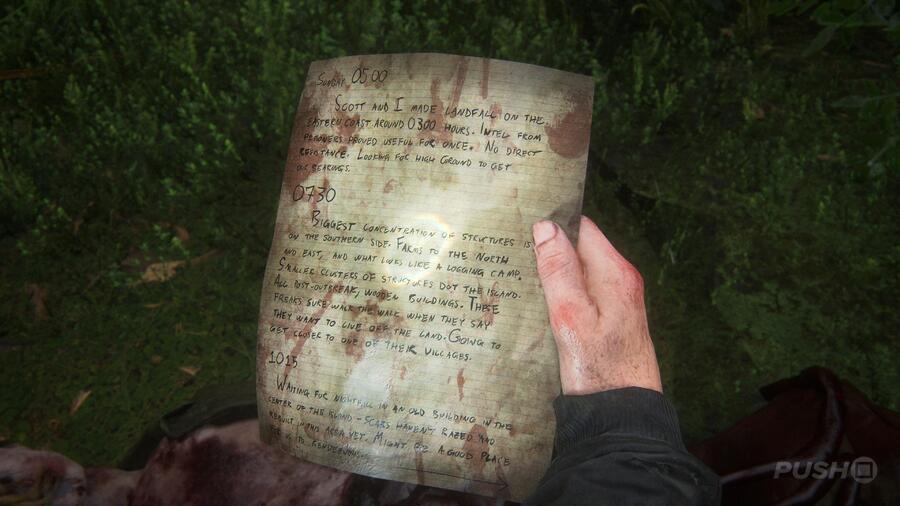 SUNDAY 0500
SCOTT AND I MADE LANDFALL ON THE
EASTERN COAST AROUND 0300 HOURS. INTEL FROM
PRISONERS PROVED USEFUL FOR ONCE. NO DIRECT
RESISTANCE. LOOKING FOR HIGH GROUND TO GET
OUR BEARINGS.
0730
BIGGEST CONCENTRATION OF STRUCTURES IS
ON THE SOUTHERN SIDE. FARMS TO THE NORTH
AND EAST, AND WHAT LOOKS LIKE A LOGGING CAMP.
SMALLER CLUSTERS OF STRUCTURES DOT THE ISLAND.
ALL POST-OUTBREAK, WOODEN BUILDINGS. THESE
FREAKS SURE WALK THE WALK WHEN THEY SAY
THEY WANT TO LIVE OFF THE LAND. GOING TO
GET CLOSER TO ONE OF THEIR VILLAGES.
1015
WAITING FOR NIGHTFALL IN AN OLD BUILDING IN THE
CENTER OF THE ISLAND - SCARS HAVEN'T RAZED AND
REBUILT IN THIS AREA YET. MIGHT BE A GOOD PLACE
FOR US TO RENDEZVOUS
PUSH